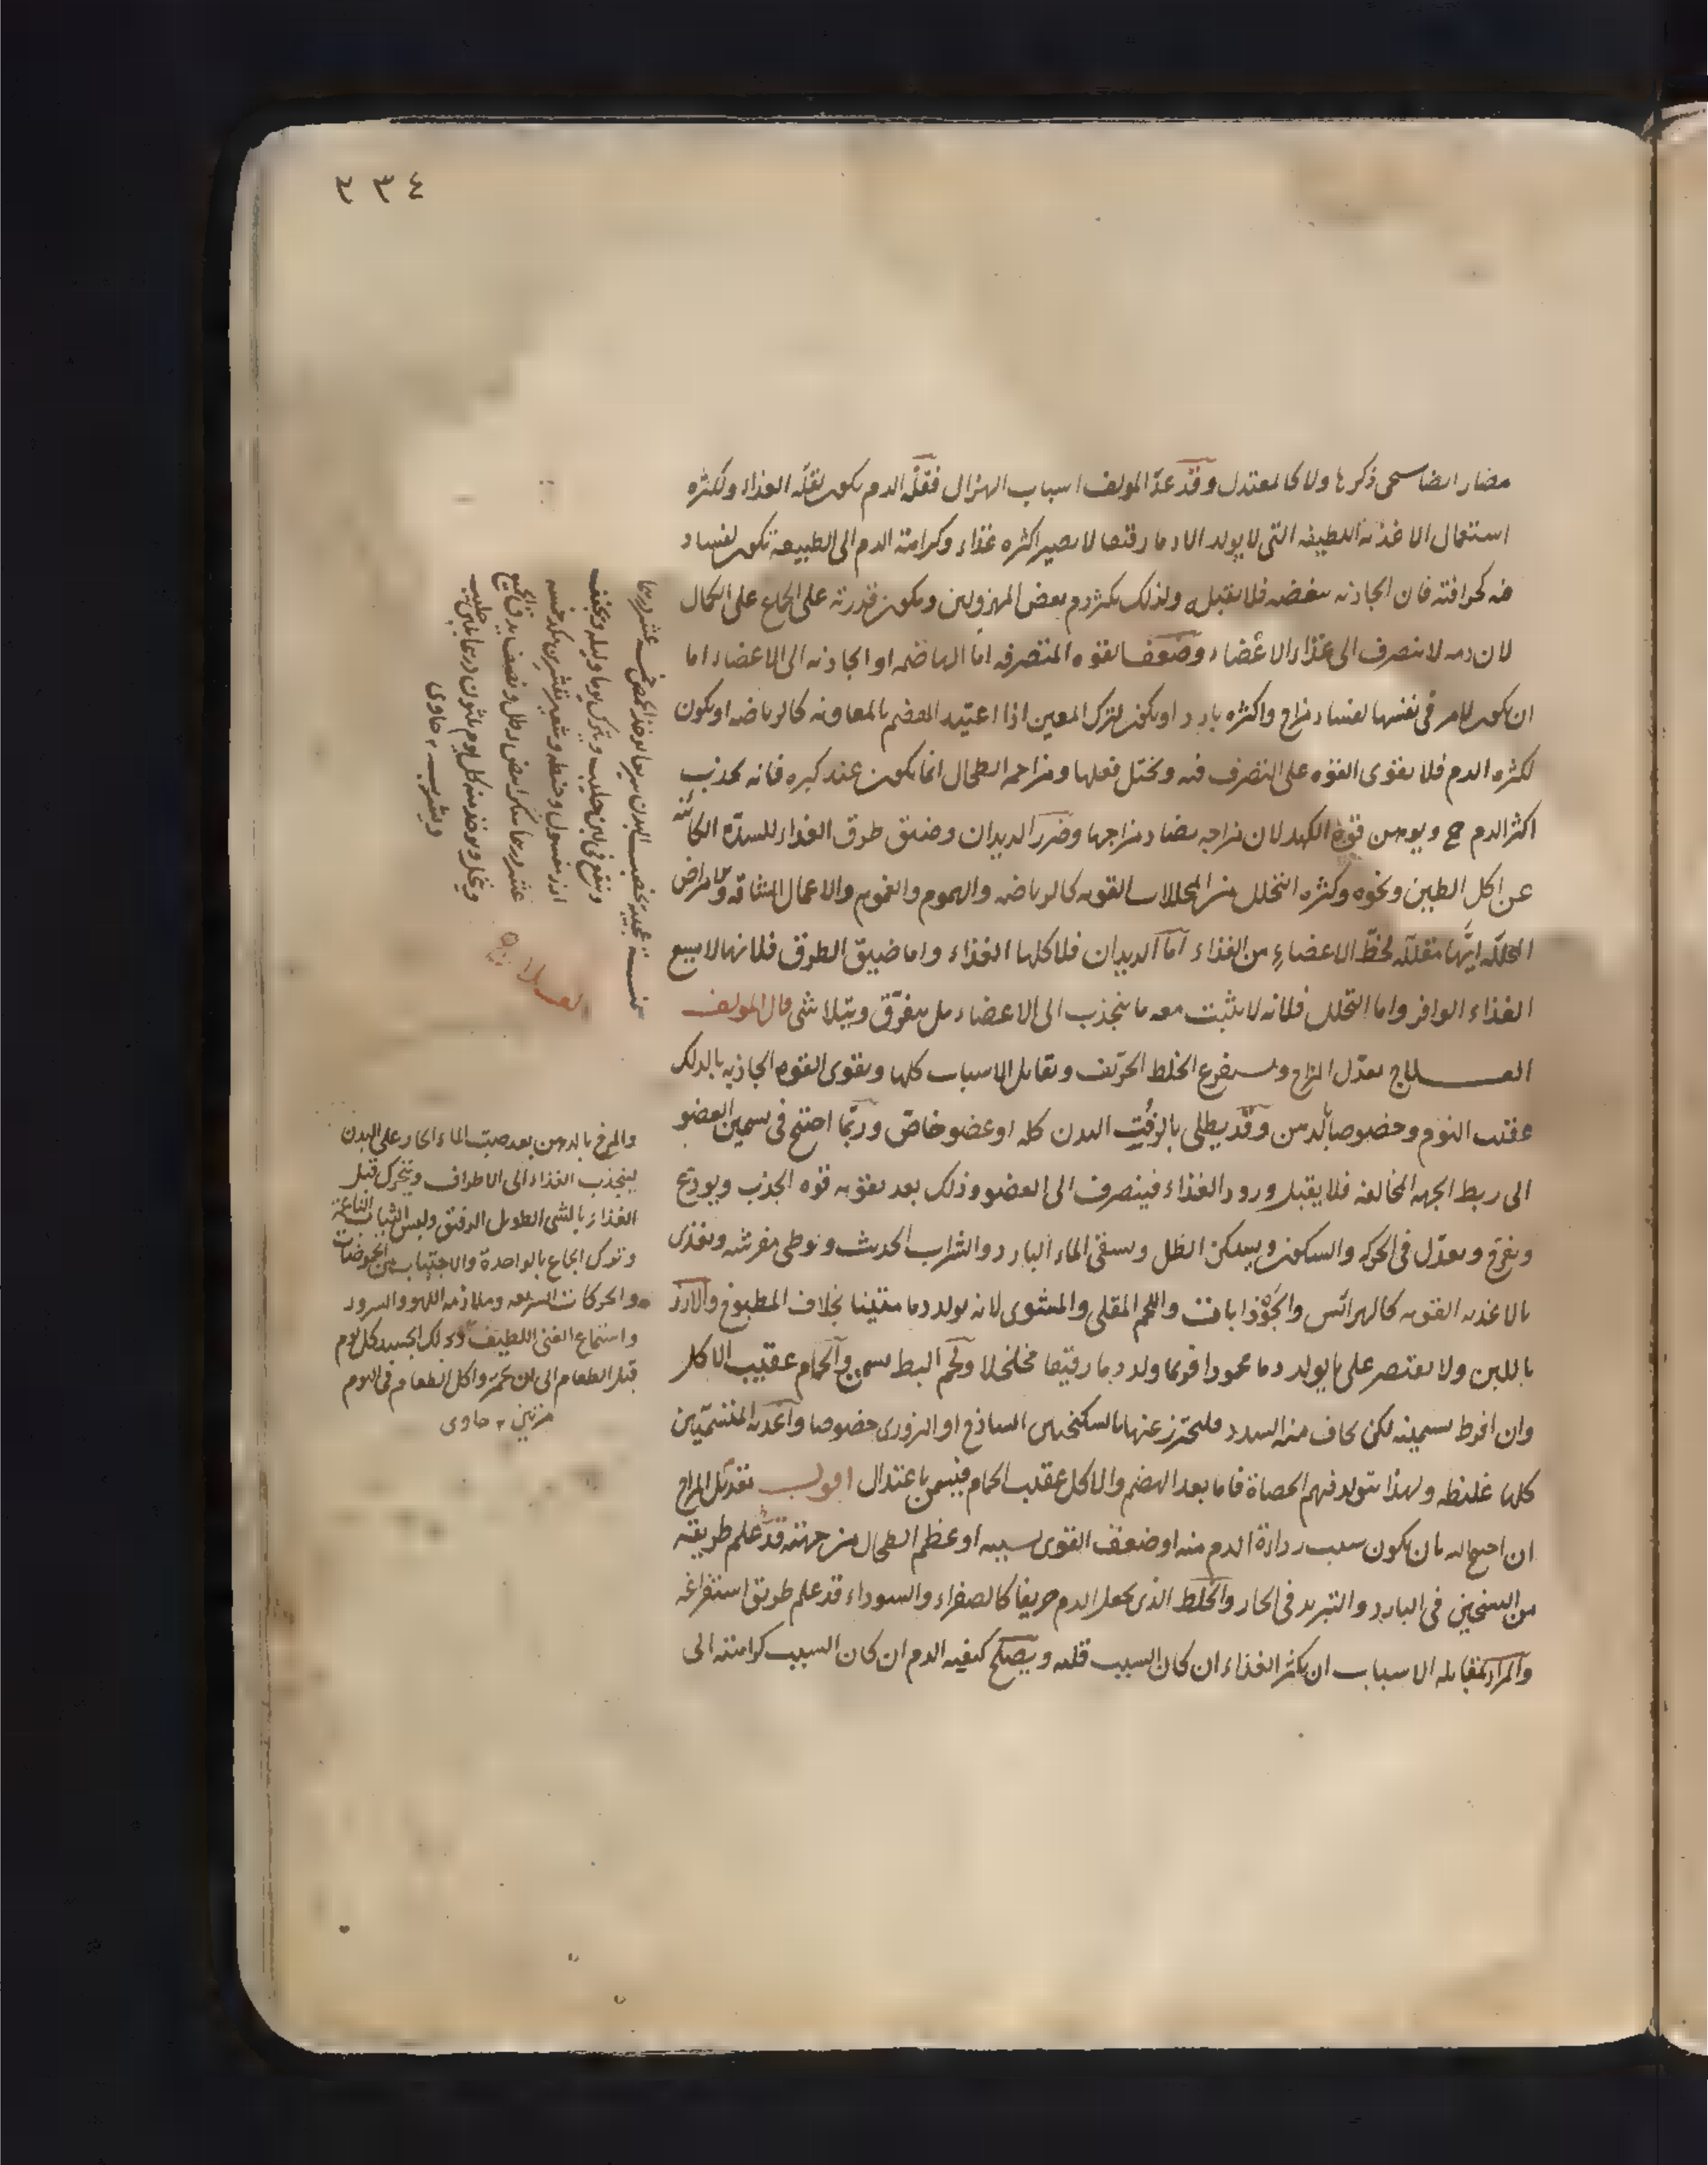 ٢٣٤
مضار ايضا سيجى ذكرها ولا كالمعتدل وقد عدّ المولف اسباب الهزال فقلة الدم يكون لقلة الغذاء ولكثره
استعمال الاغذيه اللطيفه التى لا يولد الا دما رقيقا لا يصير اكثره غذاء وكراهة الدم الى الطبيعة يكون لفساد
فيه كحرافته فان الجاذبه تبغضه فلا تقبله ولذلك يكثر دم بعض المهزولين ويكون قدرته على الجماع على الكمال
لان دمه لا ينصرف الى غذاء الاعضاء وضعف القوه المتصرفه اما الهاضمه او الجاذبه الى الاعضاء اما
ان يكون لامر فى نفسها لفساد مزاج واكثره بارد او يكون لترك المعين اذا اعتيد الهضم بالمعاونه كالرياضه او يكون
لكثره الدم فلا يقوى القوه على التصرف فيه ويختل فعلها ومزاحمه الطحال انما يكون عند كبره فانه يجذب
اكثر الدم ح ويوهن قوة الكبد لان مزاجه يضاد مزاجها وضرر الديدان وضيق طرق الغذاء للسدّه الكائنه
عن اكل الطين ونحوه وكثره التحلل من المحللات القويه كالرياضه والهموم والغموم والاعمال الشاقه والامراض
المحللّه انها مقللّه لحظّ الاعضاء من الغذاء اما الديدان فلاكلها الغذاء واما ضيق الطرق فلانها لا يسع
الغذاء الوافر واما التحلل فلانه لا يثبت معه ما ينجذب الى الاعضاء بل يتفرّق ويتلاشى قال المولف
العـــلاج يعدّل المزاج ويستفرغ الخلط الحرّيف ويقابل الاسباب كلها ويقوى القوه الجاذبه بالدلك
عقيب النوم وخصوصا بالدهن وقد يطلى بالزفت البدن كله او عضو خاصّ وربّما احتيج فى تسمين العضو
الى ربط الجهه المخالفه فلا يقبل ورود الغذاء فينصرف الى العضو وذلك بعد تقويه قوه الجذب ويودّع
ويفرح ويعدّل فى الحركه والسكون ويسكن الظل ويسقى الماء البارد والشراب الحديث ويوطى مفرشه ويغذى
بالاغذيه القويه كالهرائس والجوذابات واللحم المقلى والمشوى لانه يولد دما متينا بخلاف المطبوخ والارز
باللبن ولا يقتصر على ما يولد دما محمودا فربما ولد دما رقيقا متخلخلا ولحم البط يسمن والحمام عقيب الاكل
وان افرط تسمينه لكن يخاف منه السدد فليحترز عنها بالسكنجبين الساذج او البزورى خصوصا واغذيه المتسمّنين
كلها غليظه ولهذا يتولد فيهم الحصاة فاما بعد الهضم والاكل عقيب الحمام فيسمن باعتدال اقول تعديل المزاج
ان احتيج اليه بان يكون سبب رداءة الدم منه او ضعف القوى بسببه او عظم الطحال من جهته قد علم طريقته
من التسخين فى البارد والتبريد فى الحار والخلط الذى يجعل الدم حريفا كالصفراء والسوداء قد علم طريق استفراغه
والمراد بمقابله الاسباب ان يكثر الغذاء ان كان السبب قلته ويصلح كيفيه الدم ان كان السبب كراهته الى
يوخذ الحمص خمسه عشر درهما
وينقع فى لبن حليب ويترك يوما وليله ويجفف
ارز مغسول وحنطه وشعير
عشر درهما سكر ابيض رطل ونصف يدق الجميع
وينخل ويوخذ منه كل يوم ثلثون درهما بلبن حليب
ويشرب حاوى
العلاج
والمرخ بالدهن بعد صبّ الماء الحار على البدن
لينجذب الغذاء الى الاطراف ويتحرك قبل
الغذاء بالمشى الطويل الرقيق ولبس الثياب الناعمة
وترك الجماع بالواحدة والاجتناب من الحموضات
والحركات السريعه وملازمه اللهو والسرور
واستماع الغنى اللطيف ودلك الجسد كل يوم
قبل الطعام الى ان يحمر واكل الطعام فى اليوم
مرتين حاوى